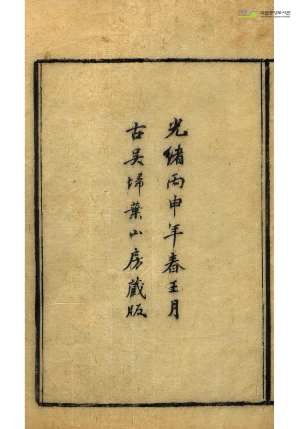 光緒丙申年春王月
古吳埽葉山房藏版